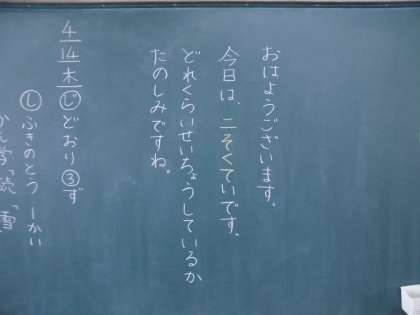 おはようございます。
今日は、二そくていです。
どれくらいせいちょうしているか
たのしみですね。
4/14 木 じどおり ③ず
し ふきのとう しかい
かん字「読「雪